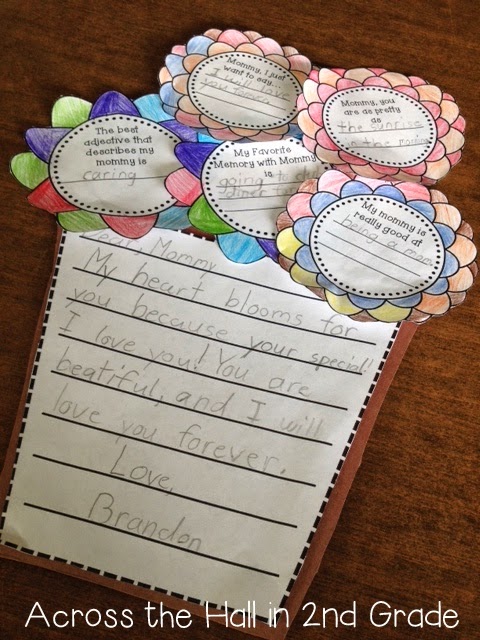 Mommy, I just
want to say...
I will love
you
Mommy, you
are as pretty
as
the sunrise
in the morning
The best
adjective that
describes my
mommy is
caring
My Favorite
Memory with Mommy
is
going to
My mommy is
really good at
being a mom.
Dear, Mommy
My heart blooms for
you because your special!
I love you! You are
beatiful, and I will
love you forever.
Love,
Brandon
Across the Hall in 2nd Grade